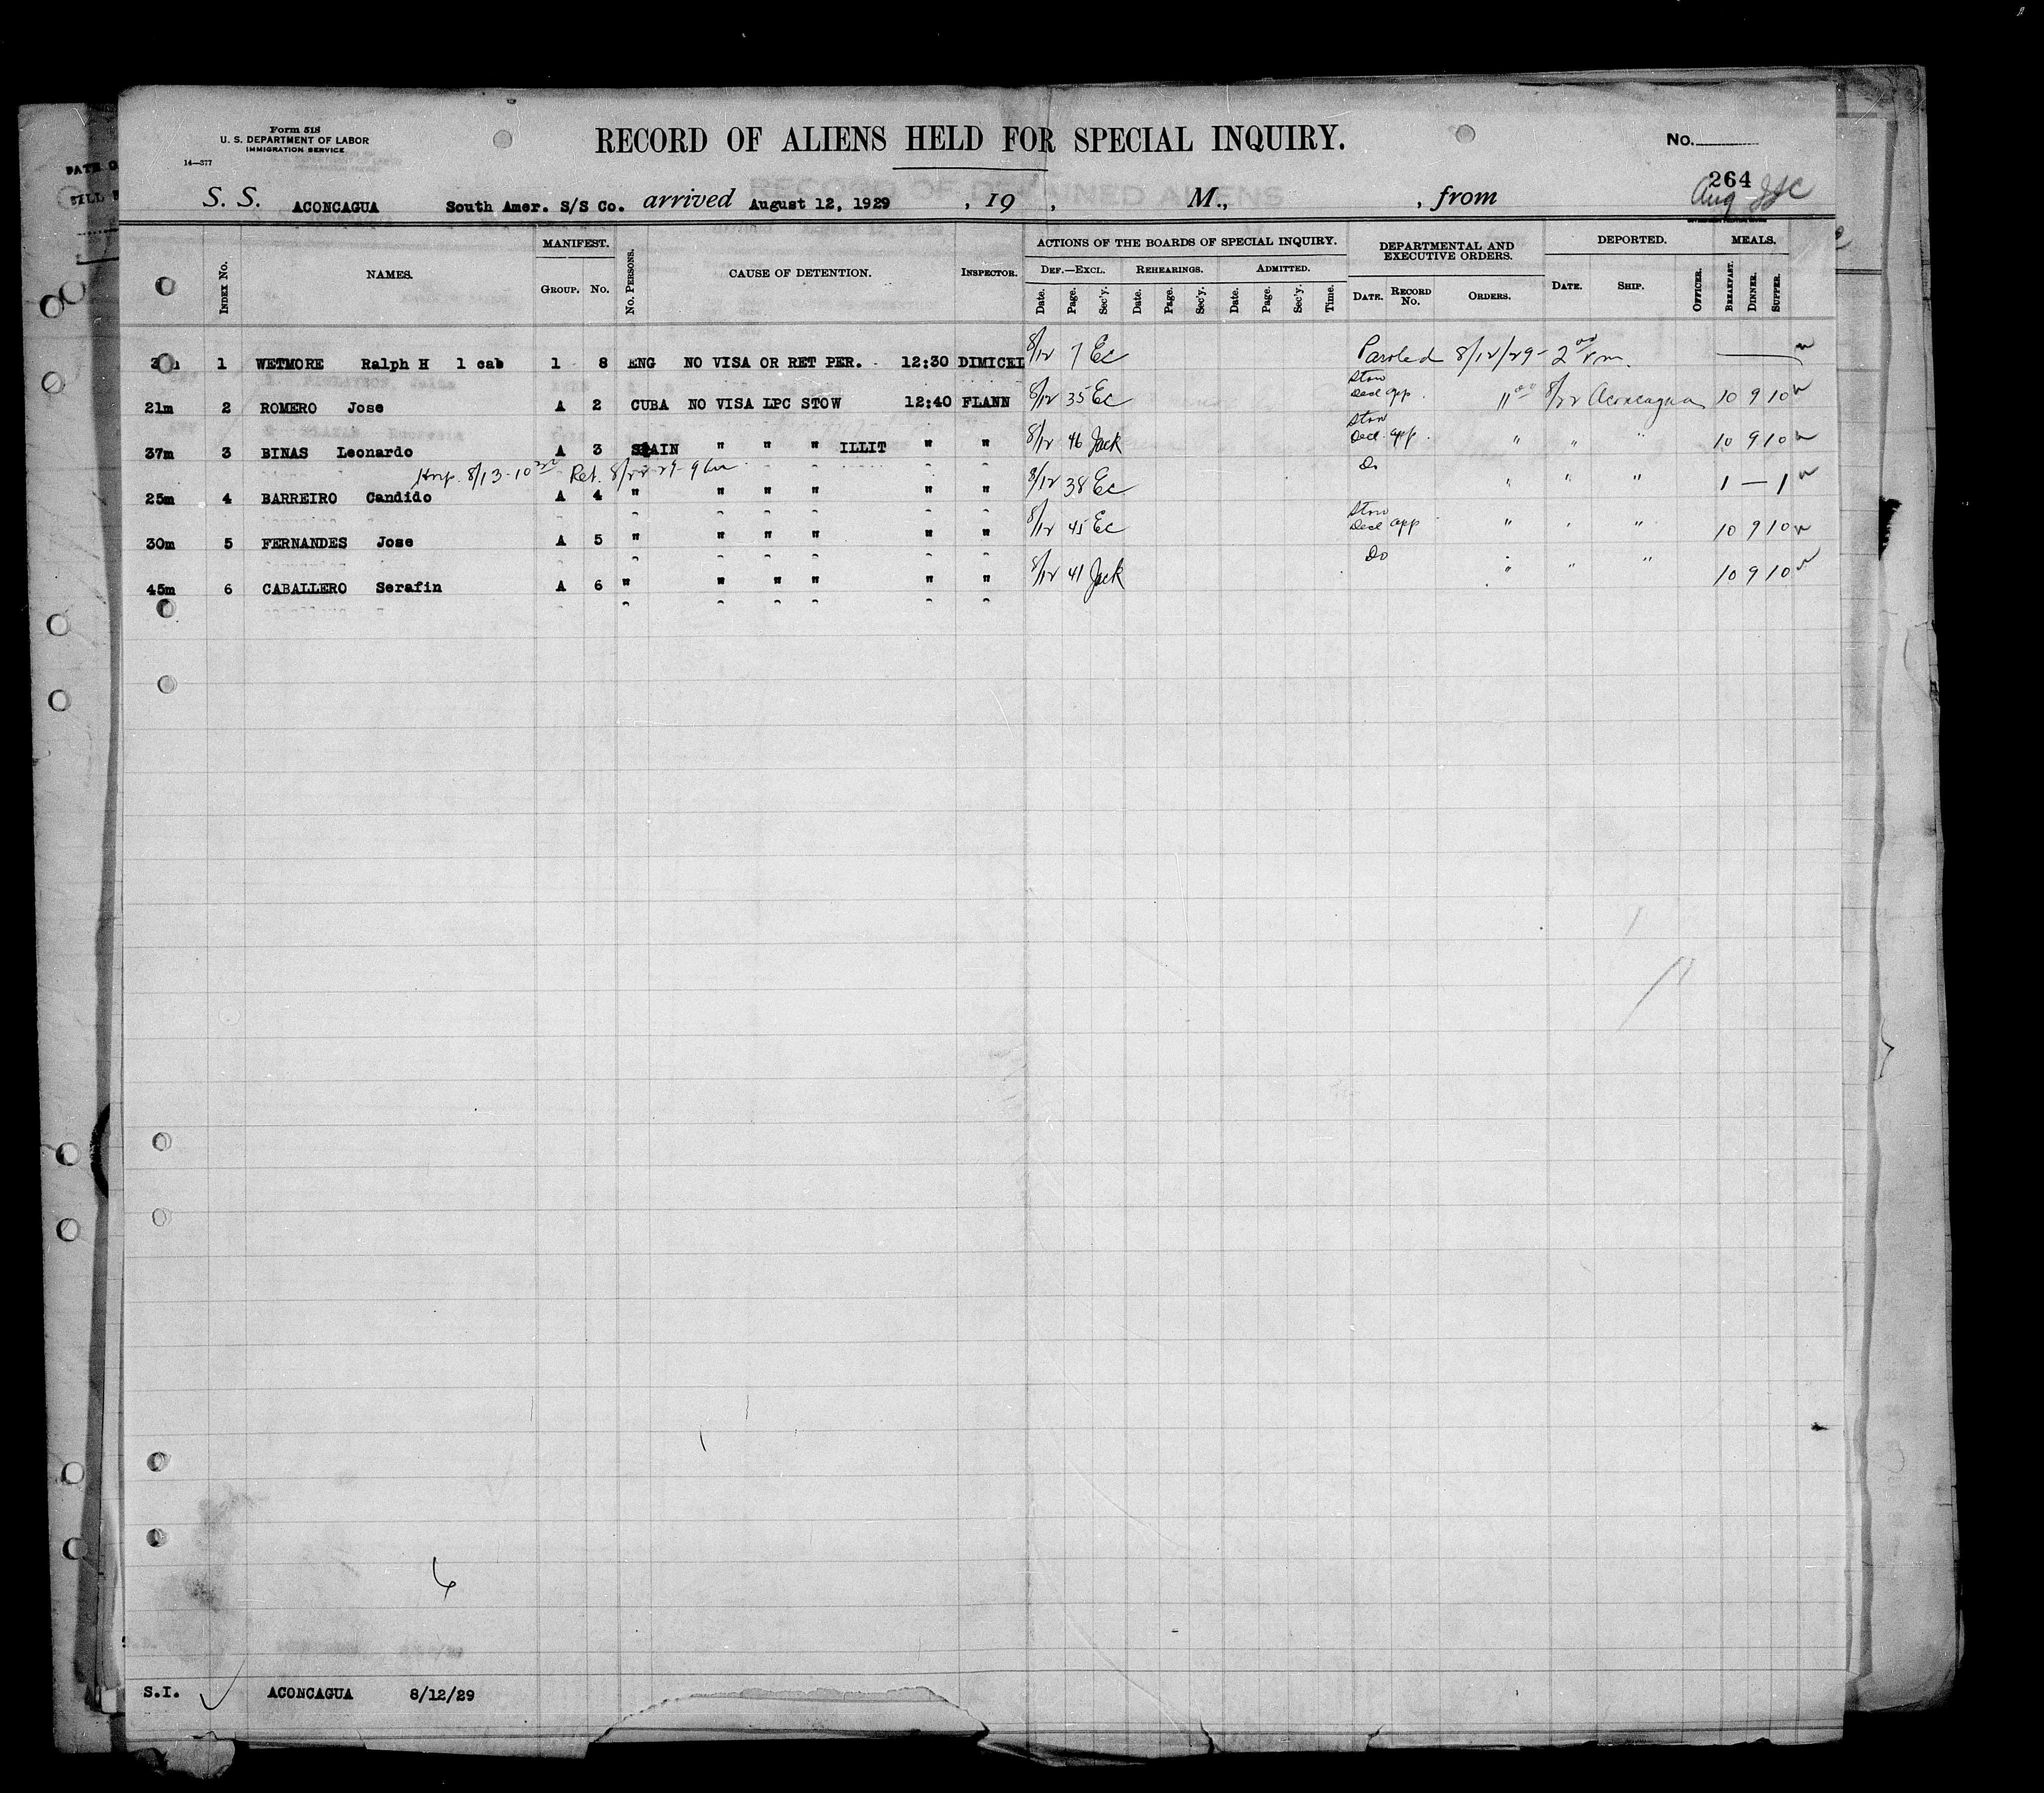 Form 518
U. S. DEPARTMENT OF LABOR
IMMIGRATION SERVICE
14—377
RECORD OF ALIENS HELD FOR SPECIAL INQUIRY.
No.
264
Aug
S. S. ACONCAGUA South Amer. S/S Co. arrived August 12, 1929 , 19 , M., , from
INDEX No. NAMES. MANIFEST. GROUP. No. No. PERSONS. CAUSE OF DETENTION. INSPECTOR.
ACTIONS OF THE BOARDS OF SPECIAL INQUIRY.
DEF.—EXCL. REHEARINGS. ADMITTED.
Date. Page. Sec'y. Date. Page. Sec'y. Date. Page. Sec'y. Time.
DEPARTMENTAL AND EXECUTIVE ORDERS.
DATE. RECORD No. ORDERS.
DEPORTED.
DATE. SHIP. OFFICER.
MEALS.
BREAKFAST. DINNER. SUPPER.
1 WETMORE Ralph H 1 cab 1 8 ENG NO VISA OR RET PER. 12:30 DIMICEL 8/12 7 Ec Paroled 8/12/29 - 2 00 P.m.
21m 2 ROMERO Jose A 2 CUBA NO VISA LPC STOW 12:40 FLANN 8/12 35 Ec Stow Decl app. 11 00 8/22 Aconcagua 10 9 10
37m 3 BINAS Leonardo A 3 SPAIN " " " ILLIT " " 8/12 46 Jack Stow Decl. app. " " " 10 9 10
Hosp. 8/13-10 Ret. 8/22-29-9
25m 4 BARREIRO Candido A 4 " " " " " " 8/12 38 Ec Do " " " 1 — 1
30m 5 FERNANDES Jose A 5 " " " " " " 8/12 45 Ec Stow Decl app " " " 10 9 10
45m 6 CABALLERO Serafin A 6 " " " " " " 8/12 41 Jack Do " " " 10 9 10
6
S.I. ACONCAGUA 8/12/29